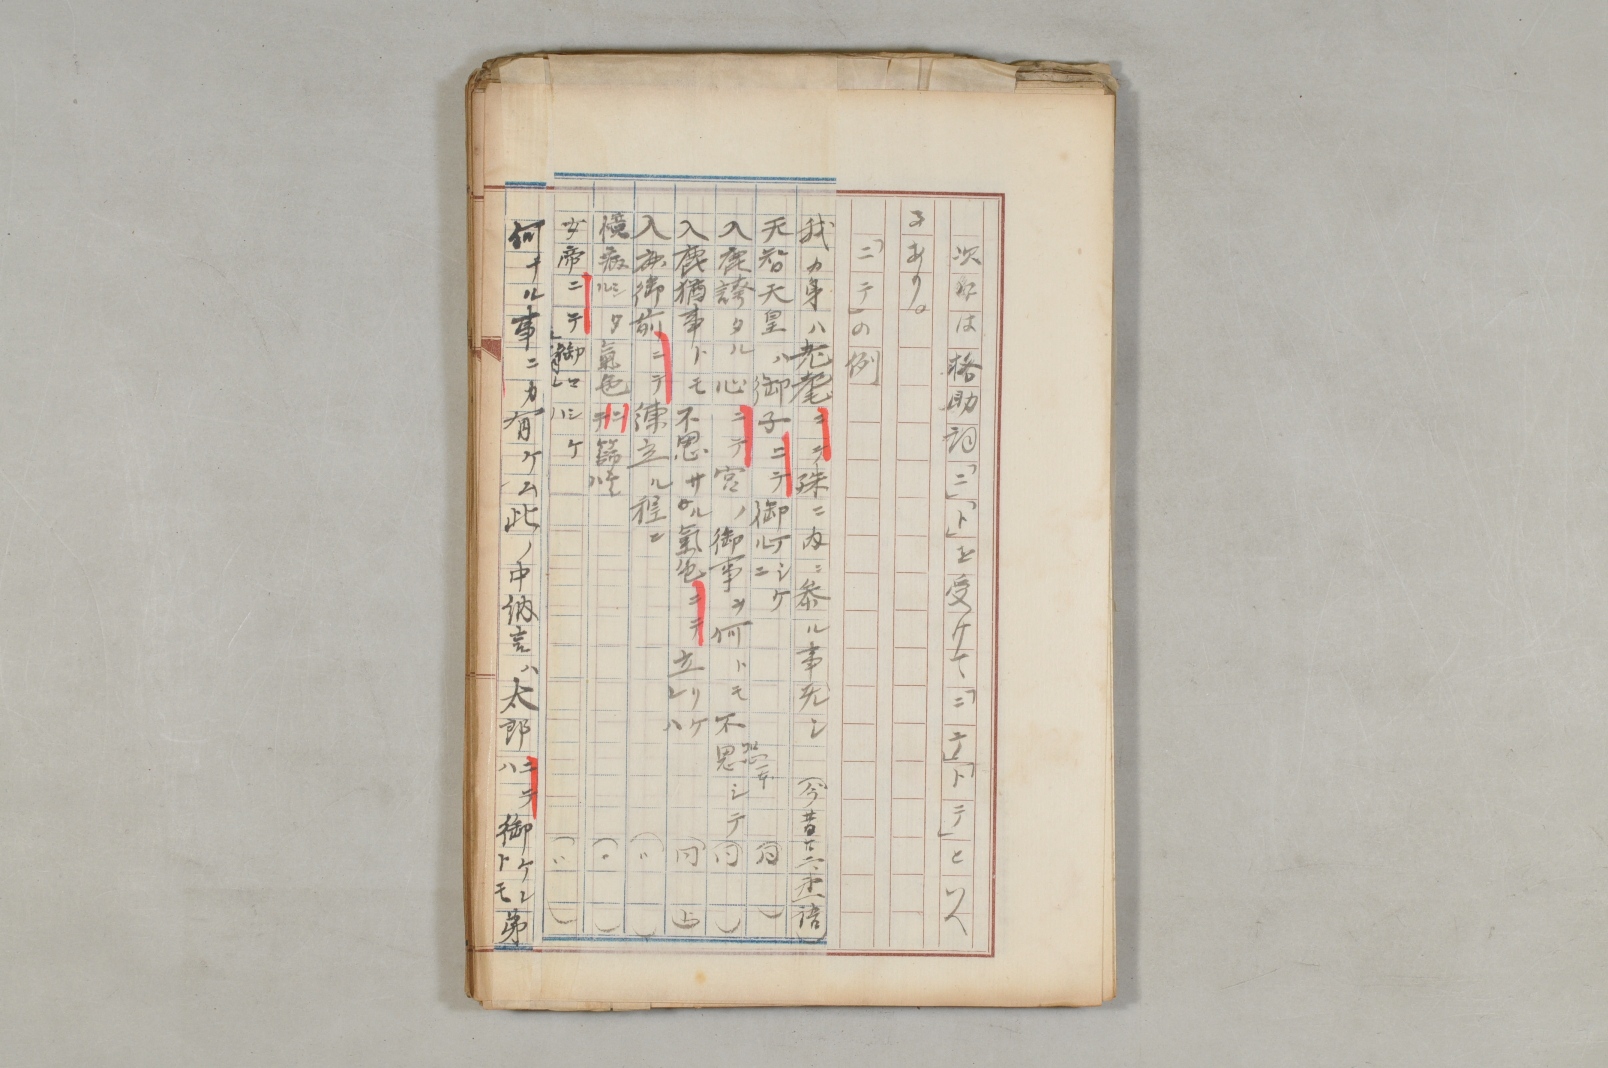 次には格助詞「ニ」「ト」を受けて「ニテ」「トテ」といへ
るあり。
「ニテ」の例
我カ身ハ老耄ニテ殊ニ内ニ参ル事无シ （今昔廿二
天智天皇ハ御子ニテ御ケルニ （同
入鹿誇タル心ニテ宮ノ御事ヲ何トモ不思シテ （同 ）
入鹿猶事トモ不思サル氣色ニテ立レリケハ （同上）
入鹿御前ニテ練立ル程ニ （〃 ）
氣色ニテ （〃 ）
女帝ニテ御シケ （〃 ）
何ナル事ニカ有ケム此ノ中納言ハ太郎ニテハ御ケレトモ弟